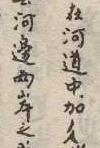 在河道中加
河邊兩岸之